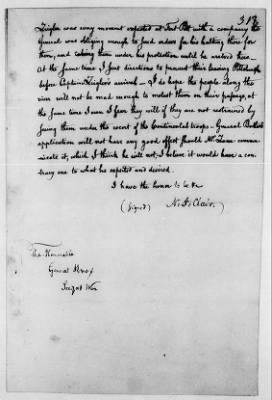 317
Zeigler was every moment expected at Fort Pitt with a company the
General was obliging enough to send orders for his halting there for
them, and taking them under his protection until he arrived here.
At the same time I sent directions to prevent their leaving Pittsburgh
before Captain Zeiglers arrival — I do hope the people along the
river will not be mad enough to molest them on their passage, at
the same time I own I fear they will if they are not restrained by
seeing them under the escort of the Continental troops. General Butler's
application will not have any good effect should Mr. communicate
it, which I think he will not, I believe it would have a con-
trary one to what he expected and desired.
I have the honor to be &c
(signed) A. St. Clair.
The Honorable
General Knox
Secy at War